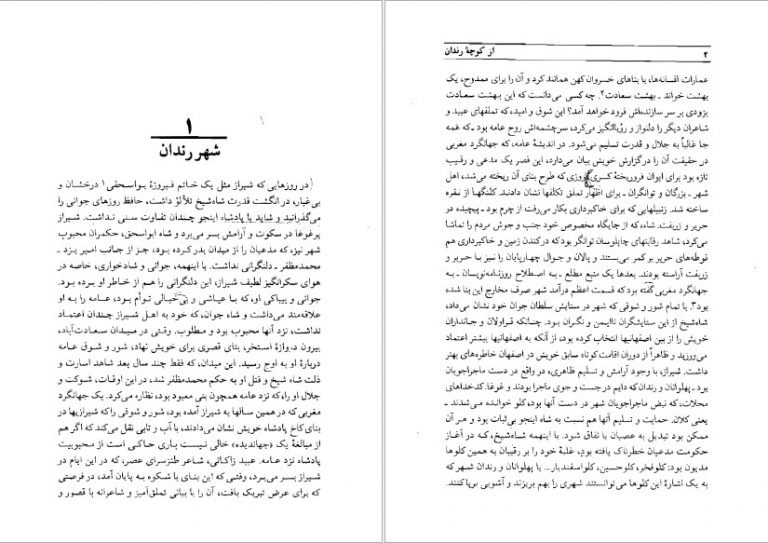 ۱
شهر رندان
در روزهایی که شیراز مثل یک خاتم فیروزهٔ بواسحقی۱ درخشان و
بی‌غبار، در انگشت قدرت شاه‌شیخ تلألؤ داشت، حافظ روزهای جوانی را
می‌گذرانید و شاید با پادشاه اینجو چندان تفاوت سنی نداشت. شیراز
پرغوغا در سکوت و آرامش بسر می‌برد و شاه ابواسحق، حکمران محبوب
شهر نیز، که مدعیان را از میدان بدر کرده بود، جز از جانب امیر یزد ـ
محمدمظفر ـ دلنگرانی نداشت. با اینهمه، جوانی و شادخواری، خاصه در
هوای سکرانگیز لطیف شیراز، این دلنگرانی را هم از خاطر او برده بود.
جوانی و بیباکی او، که با عیاشی و بی‌خیالی توأم بود، عامه را به او
علاقه‌مند می‌داشت و شاه جوان، که خود به اهل شیراز چندان اعتماد
نداشت، نزد آنها محبوب بود و مطلوب. وقتی در میدان سعادت‌آباد،
بیرون دروازهٔ استخر، بنای قصری برای خویش نهاد، شور و شوق عامه
دربارهٔ او به اوج رسید. این میدان، که فقط چند سال بعد شاهد اسارت و
ذلت شاه شیخ و قتل او به حکم محمدمظفر شد، در این اوقات، شوکت و
جلال او را، که نزد عامه همچون بنی معبود بود، نظاره می‌کرد. یک جهانگرد
مغربی که در همین سالها به شیراز آمده بود، شور و شوقی را که شیرازیها در
بنای کاخ پادشاه خویش نشان می‌دادند، با آب و تابی نقل می‌کند که اگر هم
از مبالغهٔ یک «جهاندیده» خالی نیست باری حاکی است از محبوبیت
پادشاه نزد عامه. عبید زاکانی، شاعر طنزسرای عصر، که در این ایام در
شیراز بسر می‌برد، وقتی که این بنای با شکوه به پایان آمد، در فرصتی
که برای عرض تبریک یافت، آن را با بیانی تملق‌آمیز و شاعرانه با قصور و
۲
از کوچهٔ رندان
عمارات افسانه‌ها، با بناهای خسروان کهن همانند کرد و آن را برای ممدوح، یک
بهشت خواند ـ بهشت سعادت۲. چه کسی می‌دانست که این بهشت سعادت
بزودی بر سر سازنده‌اش فرود خواهد آمد؟ این شوق و امید، که تملقهای عبید و
شاعران دیگر را دلنواز و رؤیاانگیز می‌کرد، سرچشمه‌اش روح عامه بود ـ که همه
جا غالباً به جلال و قدرت تسلیم می‌شود. در اندیشهٔ عامه، که جهانگرد مغربی
در حقیقت آن را در گزارش خویش بیان می‌دارد، این قصر یک مدعی و رقیب
تازه بود برای ایوان فروریختهٔ کسری روزی که طرح بنای آن ریخته‌شد، اهل
شهر ـ بزرگان و توانگران ـ برای اظهار تملق تکلفها نشان دادند. کلنگها از نقره
ساخته شد. زنبیلهایی که برای خاکبرداری بکار می‌رفت از چرم بود ـ پیچیده در
حریر و زربفت. شاه، که از جایگاه مخصوص خود جنب و جوش مردم را تماشا
می‌کرد، شاهد رقابتهای چاپلوسان توانگر بود که در کندن زمین و خاکبرداری هم
فوطه‌های حریر بر کمر می‌بستند. و پالان و جوال چهارپایان را نیز با حریر و
زربفت آراسته بودند. بعدها یک منبع مطلع ـ به اصطلاح روزنامه‌نویسان ـ به
جهانگرد مغربی گفته بود که قسمت اعظم درآمد شهر صرف مخارج این بنا شده
بود۳. با تمام شور و شوقی که شهر در ستایش سلطان جوان خود نشان می‌داد،
شاه‌شیخ از این ستایشگران ناایمن و نگران بود. چنانکه قراولان و جانداران
خویش را از بین اصفهانیها انتخاب کرده بود، از آنکه به اصفهانیها بیشتر اعتماد
می‌ورزید و ظاهراً از دوران اقامت کوتاه سابق خویش در اصفهان خاطره‌های بهتر
داشت. شیراز، با وجود آرامش و تسلیم ظاهری، در واقع در دست ماجراجویان
بود ـ پهلوانان و رندان که دایم در جست و جوی ماجرا بودند و غوغا. کدخداهای
محلات، که نبض ماجراجویان شهر در دست آنها بود، کلو خوانده می‌شدند ـ
یعنی کلان. حمایت و تسلیم آنها هم نسبت به شاه اینجو بی‌ثبات بود و هر آن
ممکن بود تبدیل به عصیان یا نفاق شود. با اینهمه شاه‌شیخ، که در آغاز
حکومت مدعیان خطرناک یافته بود، غلبهٔ خود را بر رقیبان به همین کلوها
مدیون بود: کلوفخر، کلوحسین، کلواسفندیار... با پهلوانان و رندان شهر که
به یک اشارهٔ این کلوها می‌توانستند شهری را بهم بریزند و آشوبی برپا کنند.